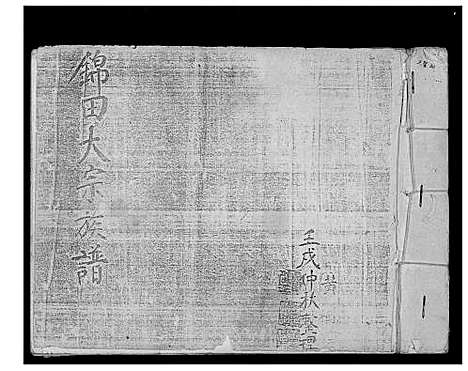 錦田大宗族譜
壬戌仲秋整理